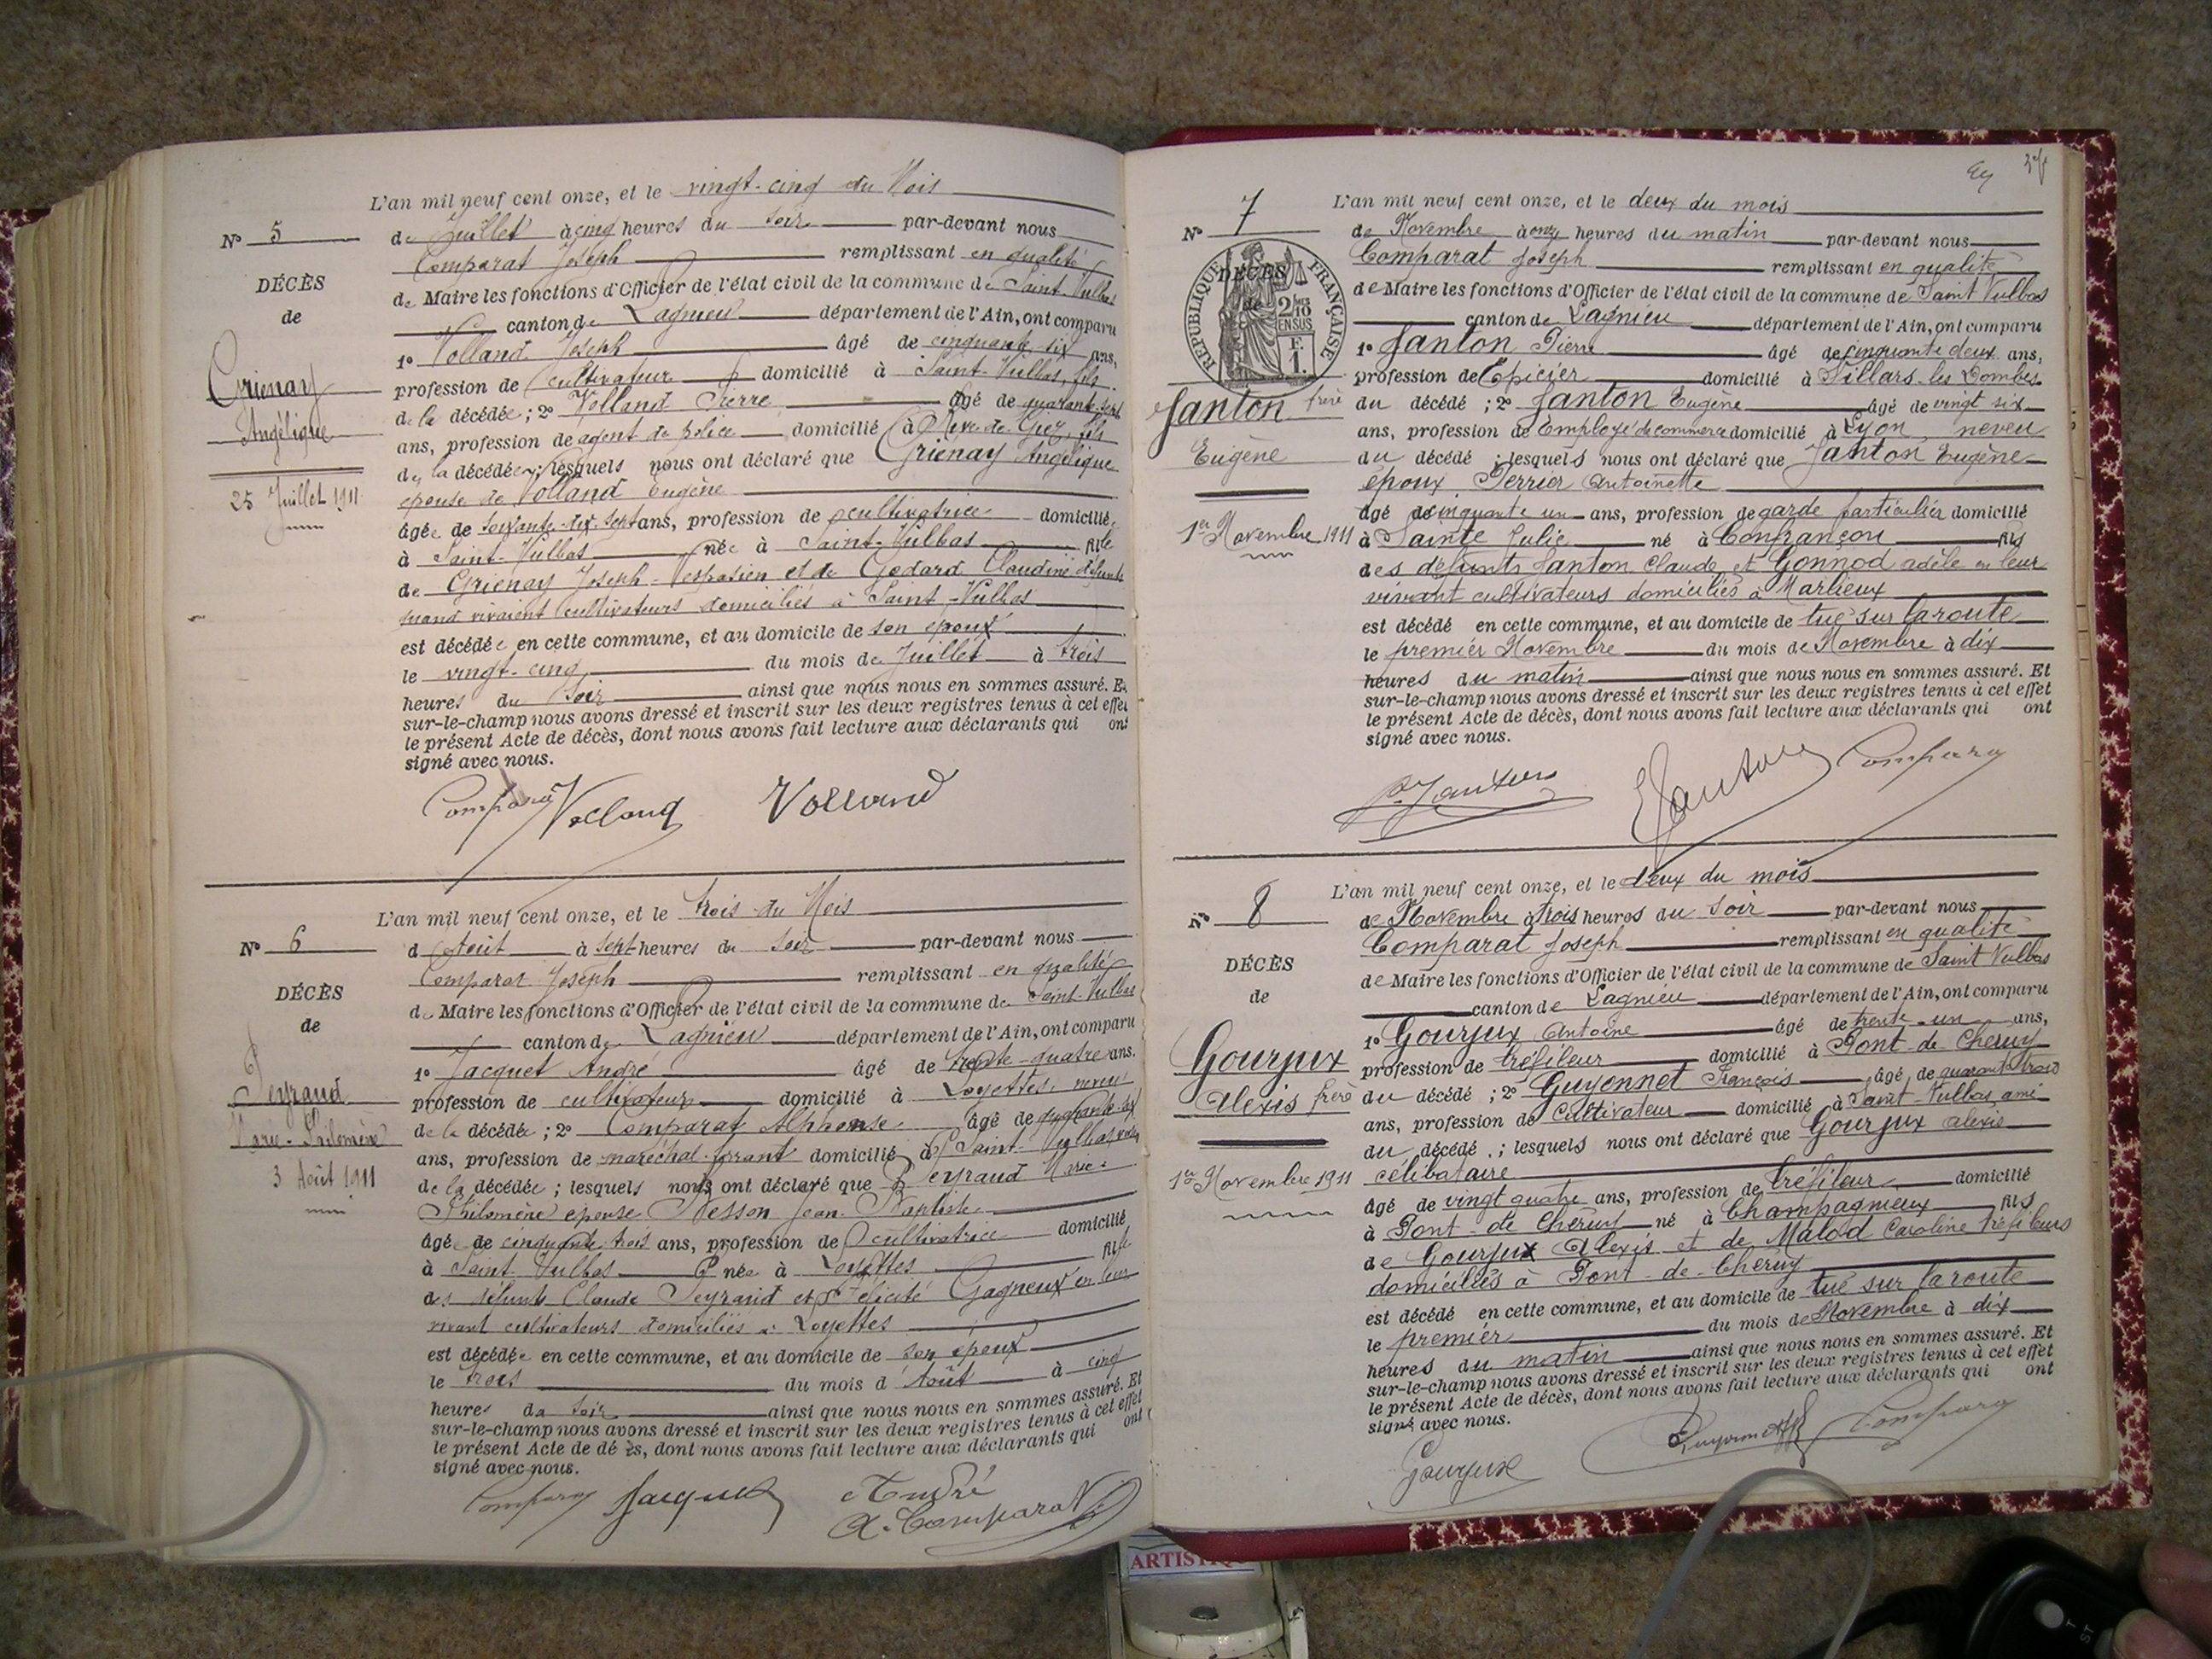 L'an mil neuf cent onze, et le vingt-cinq du Mois
N° 5
de Juillet à cinq heures du soir par-devant nous
Comparat Joseph remplissant en qualité
DÉCÈS
de Maire les fonctions d'Officier de l'état civil de la commune de Saint-Vulbas
de
canton de Lagnieu département de l'Ain, ont comparu
1° Volland Joseph âgé de cinquante-six ans,
Grienay
profession de cultivateur domicilié à Saint-Vulbas, fils
de la décédée ; 2° Volland Pierre âgé de quarante-sept
Angélique
ans, profession de agent de police domicilié à Rive de Giez, fils
de la décédée ; lesquels nous ont déclaré que Grienay Angélique
25 Juillet 1911
épouse de Volland Eugène
âgée de soixante-dix-sept ans, profession de cultivatrice domiciliée
à Saint-Vulbas née à Saint-Vulbas fille
de Grienay Joseph-Vespasien et de Godard Claudine défunts
quand vivaient cultivateurs domiciliés à Saint-Vulbas
est décédée en cette commune, et au domicile de son époux
le vingt-cinq du mois de Juillet à trois
heures du soir ainsi que nous nous en sommes assuré. Et
sur-le-champ nous avons dressé et inscrit sur les deux registres tenus à cet effet
le présent Acte de décès, dont nous avons fait lecture aux déclarants qui ont
signé avec nous.
Comparat Volland Volland
L'an mil neuf cent onze, et le trois du Mois
N° 6
d'Août à sept heures du soir par-devant nous
Comparat Joseph remplissant en qualité
DÉCÈS
de Maire les fonctions d'Officier de l'état civil de la commune de Saint-Vulbas
de
canton de Lagnieu département de l'Ain, ont comparu
1° Jacquet André âgé de trente-quatre ans.
Peyraud
profession de cultivateur domicilié à Loyettes, neveu
Marie-Philomène
de la décédée ; 2° Comparat Alphonse âgé de
ans, profession de maréchal-ferrant domicilié à Saint-Vulbas
3 Août 1911
de la décédée ; lesquels nous ont déclaré que Peyraud Marie-
Philomène épouse Besson Jean-Baptiste
âgée de cinquante-trois ans, profession de cultivatrice domiciliée
à Saint-Vulbas née à Loyettes fille
des défunts Claude Peyraud et Félicité Gagneux en leur
vivant cultivateurs domiciliés à Loyettes
est décédée en cette commune, et au domicile de son époux
le trois du mois d'Août à cinq
heures du soir ainsi que nous nous en sommes assuré. Et
sur-le-champ nous avons dressé et inscrit sur les deux registres tenus à cet effet
le présent Acte de décès, dont nous avons fait lecture aux déclarants qui ont
signé avec nous.
Comparat Jacquet André
A. Comparat
L'an mil neuf cent onze, et le deux du mois
N° 7
de Novembre à onze heures du matin par-devant nous
Comparat Joseph remplissant en qualité
DÉCÈS
de
RÉPUBLIQUE FRANÇAISE
2/10 EN SUS
F. 1.
de Maire les fonctions d'Officier de l'état civil de la commune de Saint Vulbas
canton de Lagnieu département de l'Ain, ont comparu
1° Janton Pierre âgé de cinquante deux ans,
profession de Epicier domicilié à Villars-les-Dombes
Janton
frère
du décédé ; 2° Janton Eugène âgé de vingt six
ans, profession de Employé de commerce domicilié à Lyon, neveu
Eugène
du décédé ; lesquels nous ont déclaré que Janton Eugène
époux Perrier Antoinette
âgé de cinquante un ans, profession de garde particulier domicilié
1er Novembre 1911
à Sainte Julie né à Confrançon fils
des défunts Janton Claude et Gonnod adèle en leur
vivant cultivateurs domiciliés à Marlieux
est décédé en cette commune, et au domicile de tué sur la route
le premier Novembre du mois de Novembre à dix
heures du matin ainsi que nous nous en sommes assuré. Et
sur-le-champ nous avons dressé et inscrit sur les deux registres tenus à cet effet
le présent Acte de décès, dont nous avons fait lecture aux déclarants qui ont
signé avec nous.
P. Janton E Janton Comparat
L'an mil neuf cent onze, et le deux du mois
N° 8
de Novembre à trois heures du soir par-devant nous
Comparat Joseph remplissant en qualité
DÉCÈS
de Maire les fonctions d'Officier de l'état civil de la commune de Saint Vulbas
de
canton de Lagnieu département de l'Ain, ont comparu
1° Gourjux Antoine âgé de trente-un ans,
Gourjux
profession de tréfileur domicilié à Pont-de-Cheruy
Alexis
frère
du décédé ; 2° Guyennet François âgé de quarante trois
ans, profession de Cultivateur domicilié à Saint-Vulbas, ami
du décédé ; lesquels nous ont déclaré que Gourjux alexis
1er Novembre 1911
célibataire
âgé de vingt quatre ans, profession de tréfileur domicilié
à Pont-de-Chéruy né à Champagneux fils
de Gourjux Alexis et de Malod Caroline tréfileurs
domiciliés à Pont-de-Chéruy
est décédé en cette commune, et au domicile de tué sur la route
le premier du mois de Novembre à dix
heures du matin ainsi que nous nous en sommes assuré. Et
sur-le-champ nous avons dressé et inscrit sur les deux registres tenus à cet effet
le présent Acte de décès, dont nous avons fait lecture aux déclarants qui ont
signé avec nous.
Gourjux Comparat
ARTISTIQUE
T
ST